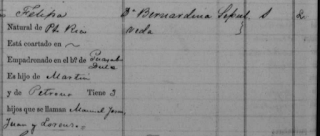 Felipa Da Bernardina Sepul. S 2
Natural de Pto Rico veda
Está coartado en ~
Empadronado en el bo. de Guayabo
Dulce
Es hijo de Martin
y de Petrona Tiene 3
hijos que se llaman Manuel Jose,
Juan y